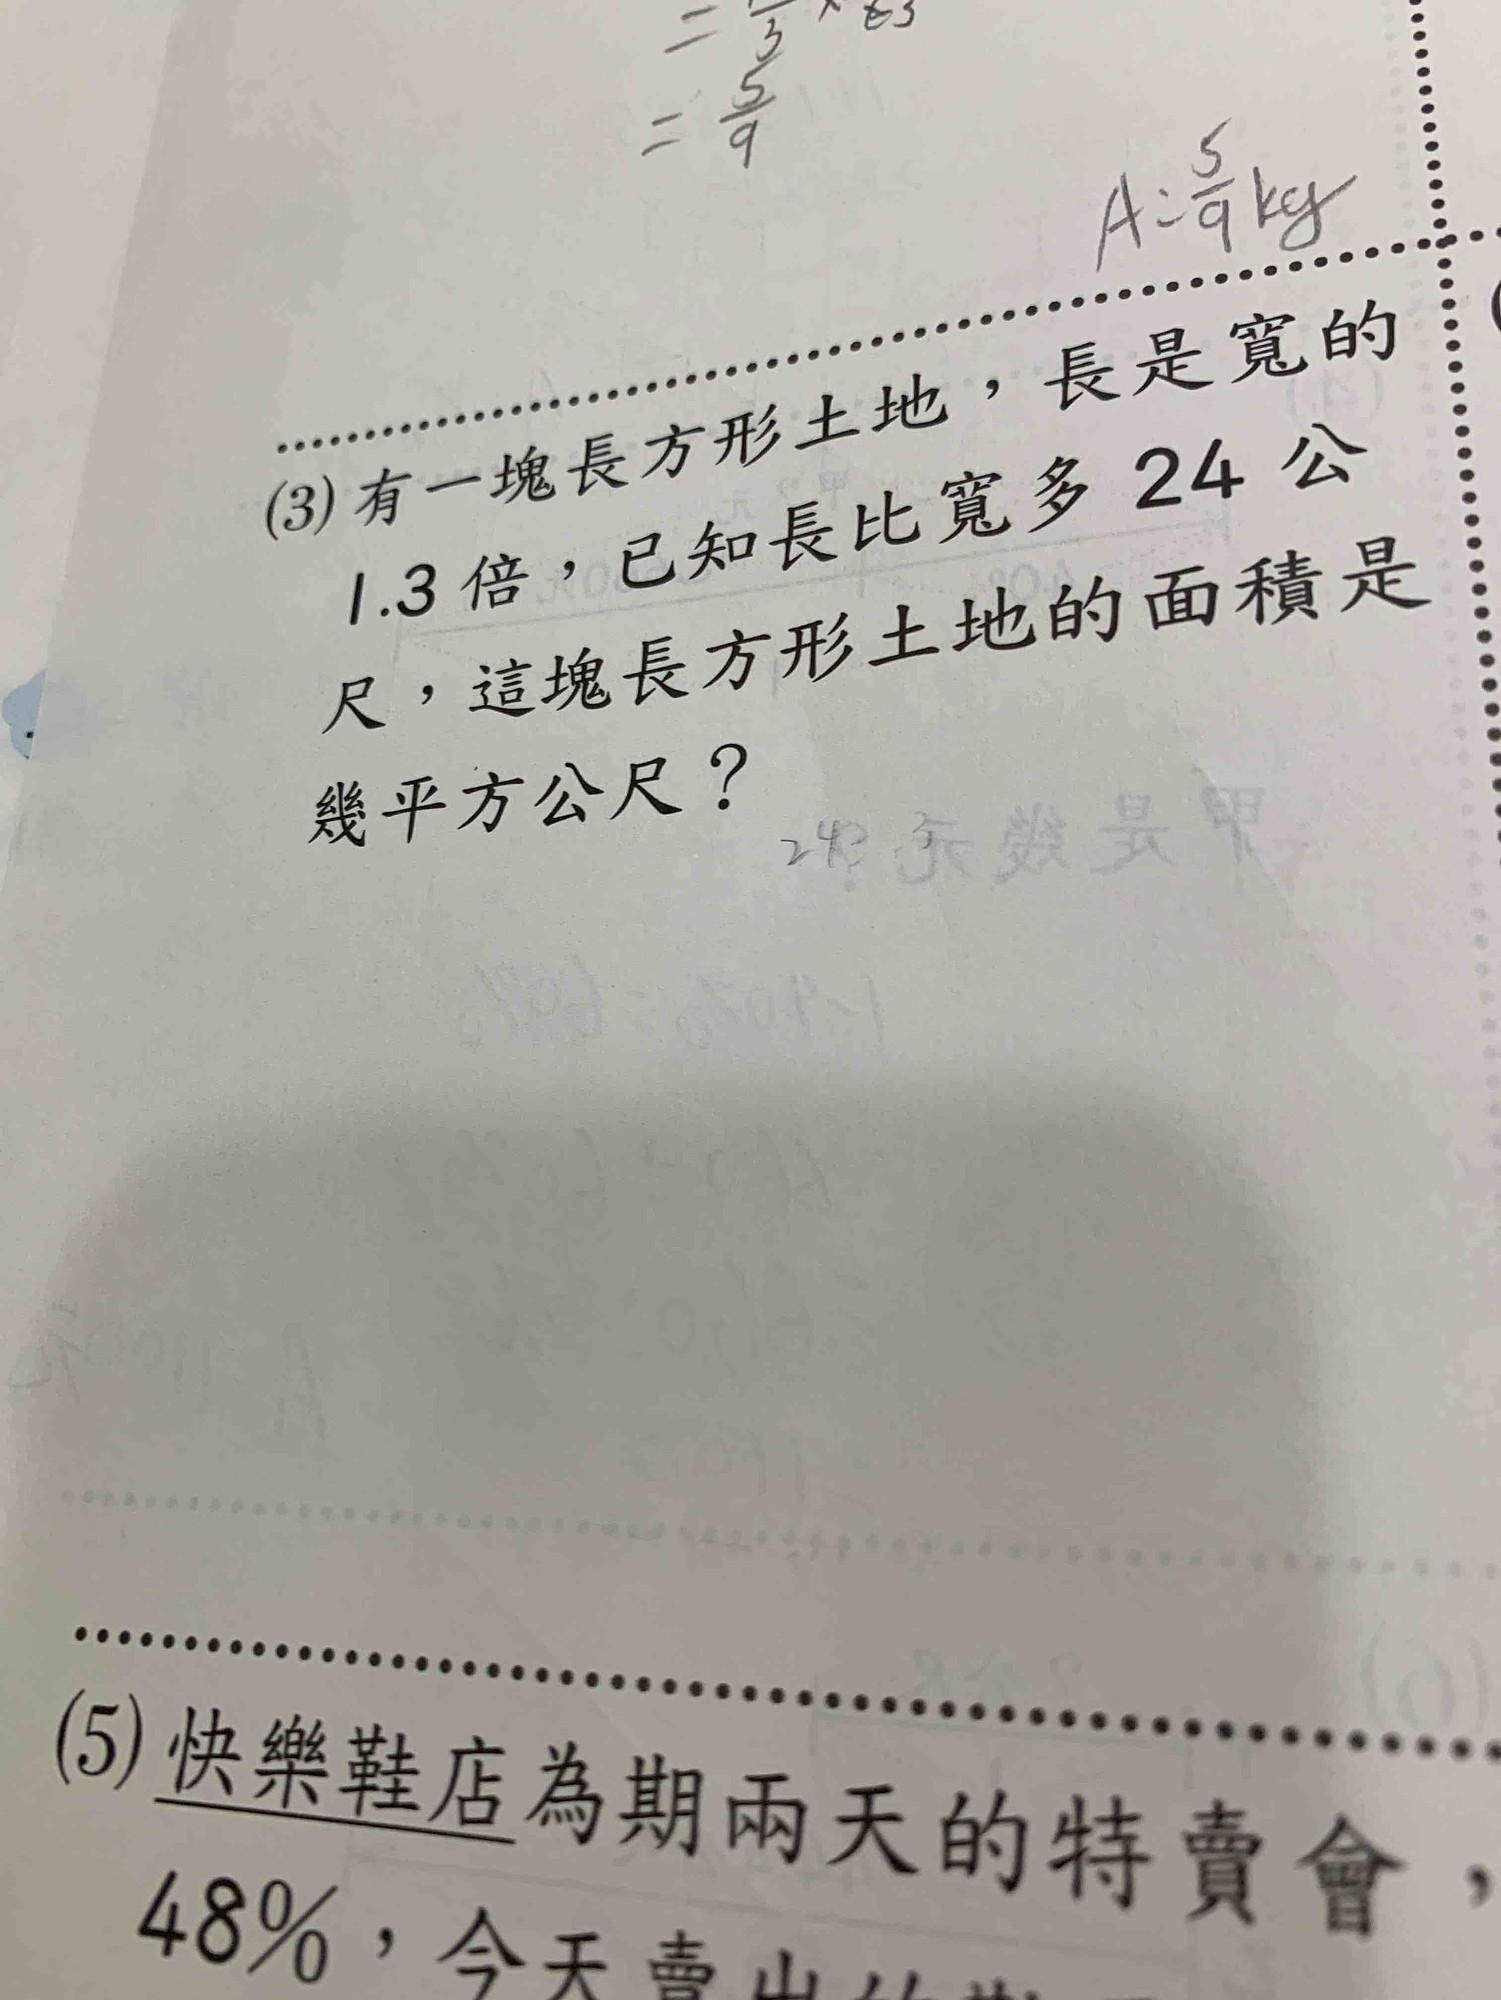 = 5/9
A: 5/9 kg
(3) 有一塊長方形土地，長是寬的
1.3 倍，已知長比寬多 24 公
尺，這塊長方形土地的面積是
幾平方公尺？
(5) 快樂鞋店為期兩天的特賣會，
48%，今天賣出的